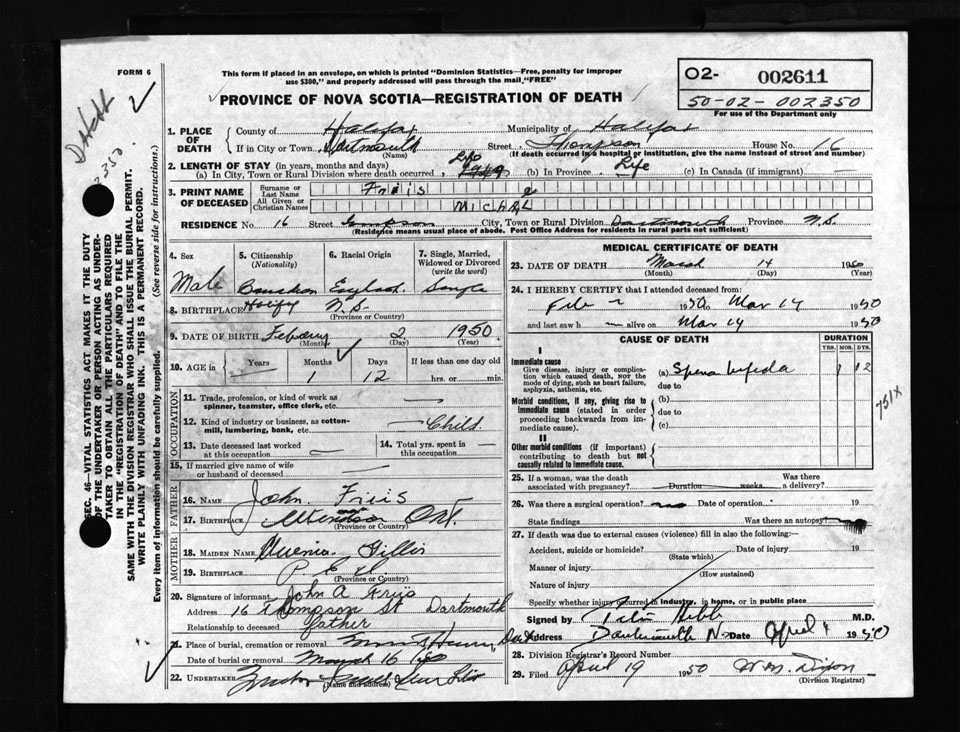 FORM 6
This form if placed in an envelope, on which is printed "Dominion Statistics—Free, penalty for improper
use $300," and properly addressed will pass through the mail "FREE"
PROVINCE OF NOVA SCOTIA—REGISTRATION OF DEATH
O2- 002611
50-02-002350
For use of the Department only
1. PLACE OF DEATH County of Halifax Municipality of Halifax
If in City or Town Dartmouth (Name) Street Thompson House No. 16
(If death occurred in a hospital or institution, give the name instead of street and number)
2. LENGTH OF STAY (in years, months and days)
(a) In City, Town or Rural Division where death occurred Life (b) In Province Life (c) In Canada (if immigrant) —
3. PRINT NAME OF DECEASED Surname or Last Name Friis
All Given or Christian Names
RESIDENCE No. 16 Street City, Town or Rural Division Dartmouth Province N.S.
(Residence means usual place of abode. Post Office Address for residents in rural parts not sufficient)
4. Sex Male
5. Citizenship (Nationality)
6. Racial Origin English
7. Single, Married, Widowed or Divorced (write the word) Single
8. BIRTHPLACE N.S (Province or Country)
9. DATE OF BIRTH (Month) 2 (Day) 1950 (Year)
10. AGE in Years — Months 1 Days 12 If less than one day old hrs. or min.
OCCUPATION
11. Trade, profession, or kind of work as spinner, teamster, office clerk, etc. —
12. Kind of industry or business, as cotton-mill, lumbering, bank, etc. — Child.
13. Date deceased last worked at this occupation —
14. Total yrs. spent in this occupation —
15. If married give name of wife or husband of deceased —
FATHER
16. NAME John Friis
17. BIRTHPLACE Ont.
MOTHER
18. MAIDEN NAME Gillis
19. BIRTHPLACE P.E.I. (Province or Country)
20. Signature of informant John A Friis
Address 16 Thompson St Dartmouth
Relationship to deceased father
21. Place of burial, cremation or removal
Date of burial or removal March 16
22. UNDERTAKER (Name and address)
MEDICAL CERTIFICATE OF DEATH
23. DATE OF DEATH March (Month) 14 (Day) 1950 (Year)
24. I HEREBY CERTIFY that I attended deceased from:
Feb 2 1950 Mar 14 1950
and last saw h — alive on Mar 14 1950
CAUSE OF DEATH DURATION
YRS. MOS. DYS.
I
Immediate cause
Give disease, injury or complication which caused death, not the mode of dying, such as heart failure, asphyxia, asthenia, etc.
(a) Spina bifida 1 12
due to
Morbid conditions, if any, giving rise to immediate cause (stated in order proceeding backwards from immediate cause).
(b)
due to
(c)
II
Other morbid conditions (if important) contributing to death but not causally related to immediate cause.
751X
25. If a woman, was the death associated with pregnancy? Duration weeks Was there a delivery?
26. Was there a surgical operation? no Date of operation 19
State findings Was there an autopsy?
27. If death was due to external causes (violence) fill in also the following:—
Accident, suicide or homicide? (State which) Date of injury 19
Manner of injury (How sustained)
Nature of injury
Specify whether injury occurred in industry, in home, or in public place
Signed by M.D.
Address Dartmouth N.S. Date April 1 1950
28. Division Registrar's Record Number
29. Filed April 19 1950 W.M. Dixon
(Division Registrar)
SEC. 46—VITAL STATISTICS ACT MAKES IT THE DUTY
OF THE UNDERTAKER OR PERSON ACTING AS UNDERTAKER TO OBTAIN ALL THE PARTICULARS REQUIRED
IN THE "REGISTRATION OF DEATH" AND TO FILE THE
SAME WITH THE DIVISION REGISTRAR WHO SHALL ISSUE THE BURIAL PERMIT.
WRITE PLAINLY WITH UNFADING INK. THIS IS A PERMANENT RECORD.
Every item of information should be carefully supplied. (See reverse side for instructions.)